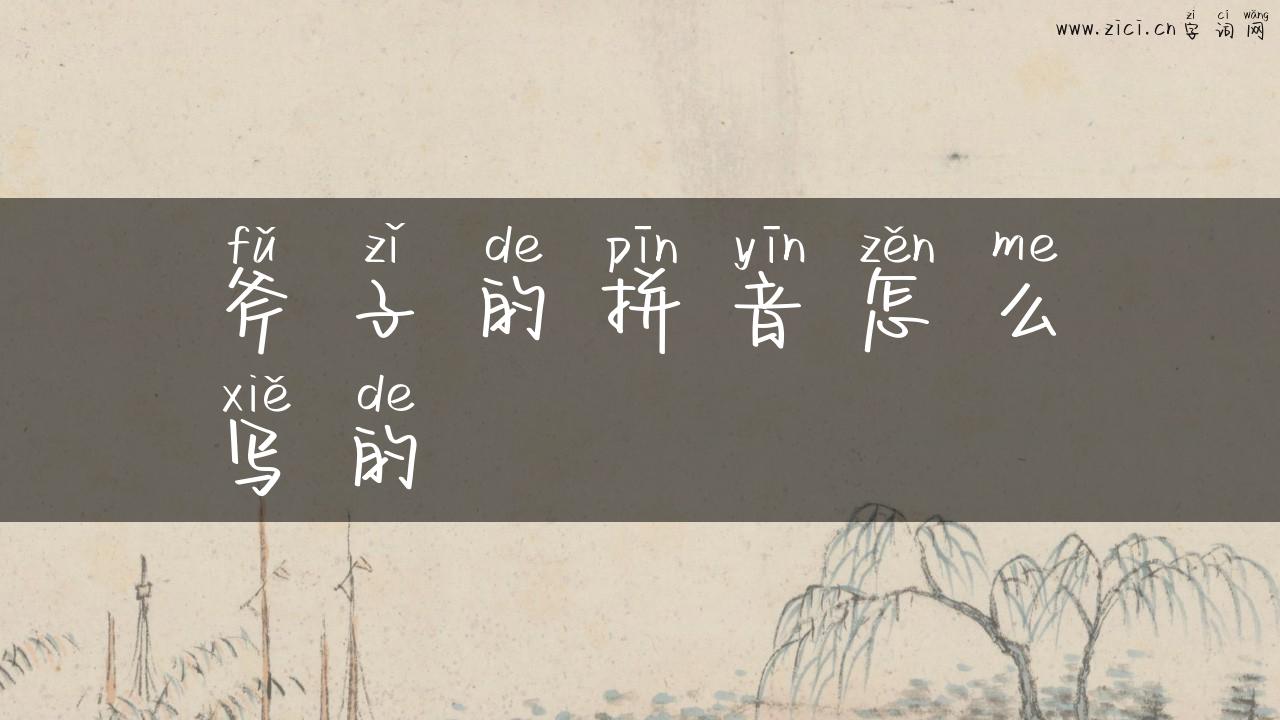 zì cí wǎng
www.zici.cn 字 词 网
fǔ zǐ de pīn yīn zěn me
斧 子 的 拼 音 怎 么
xiě de
写 的